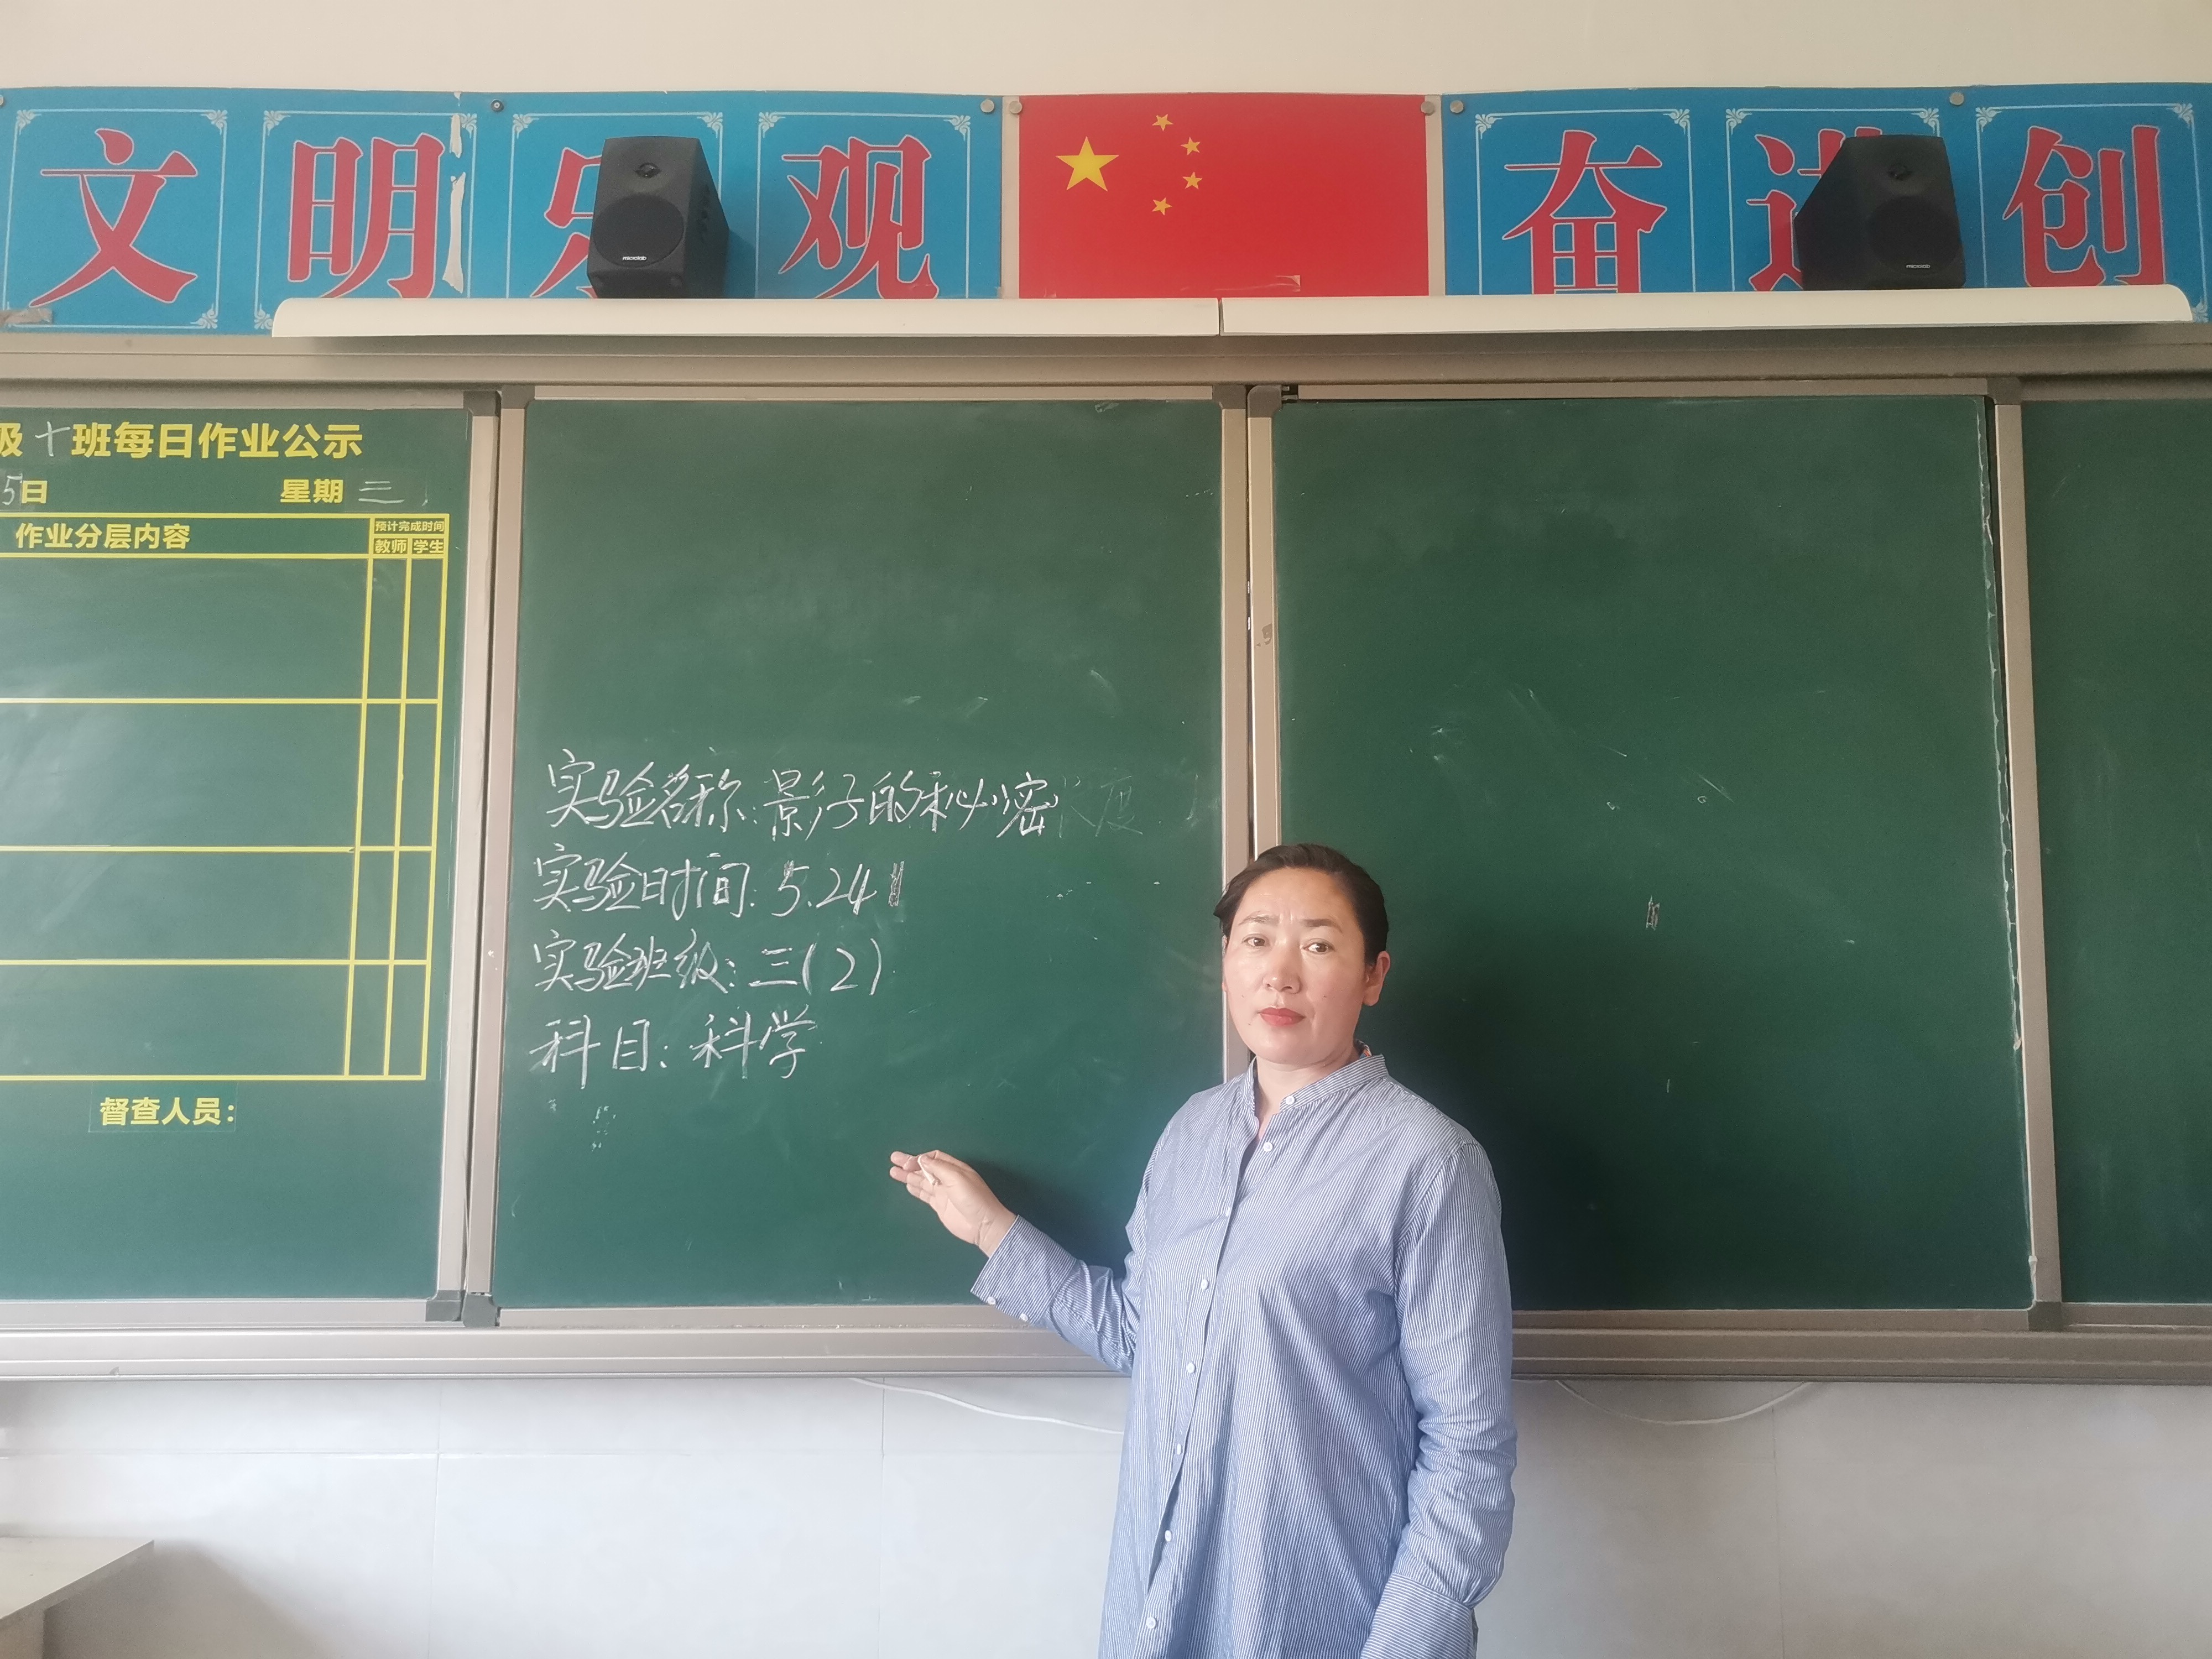 文明乐观
奋进创
microlab
microlab
级十班每日作业公示
5日 星期三
作业分层内容
预计完成时间
教师 学生
督查人员：
实验名称：影子的秘密
实验时间：5.24
实验班级：三（2）
科目：科学